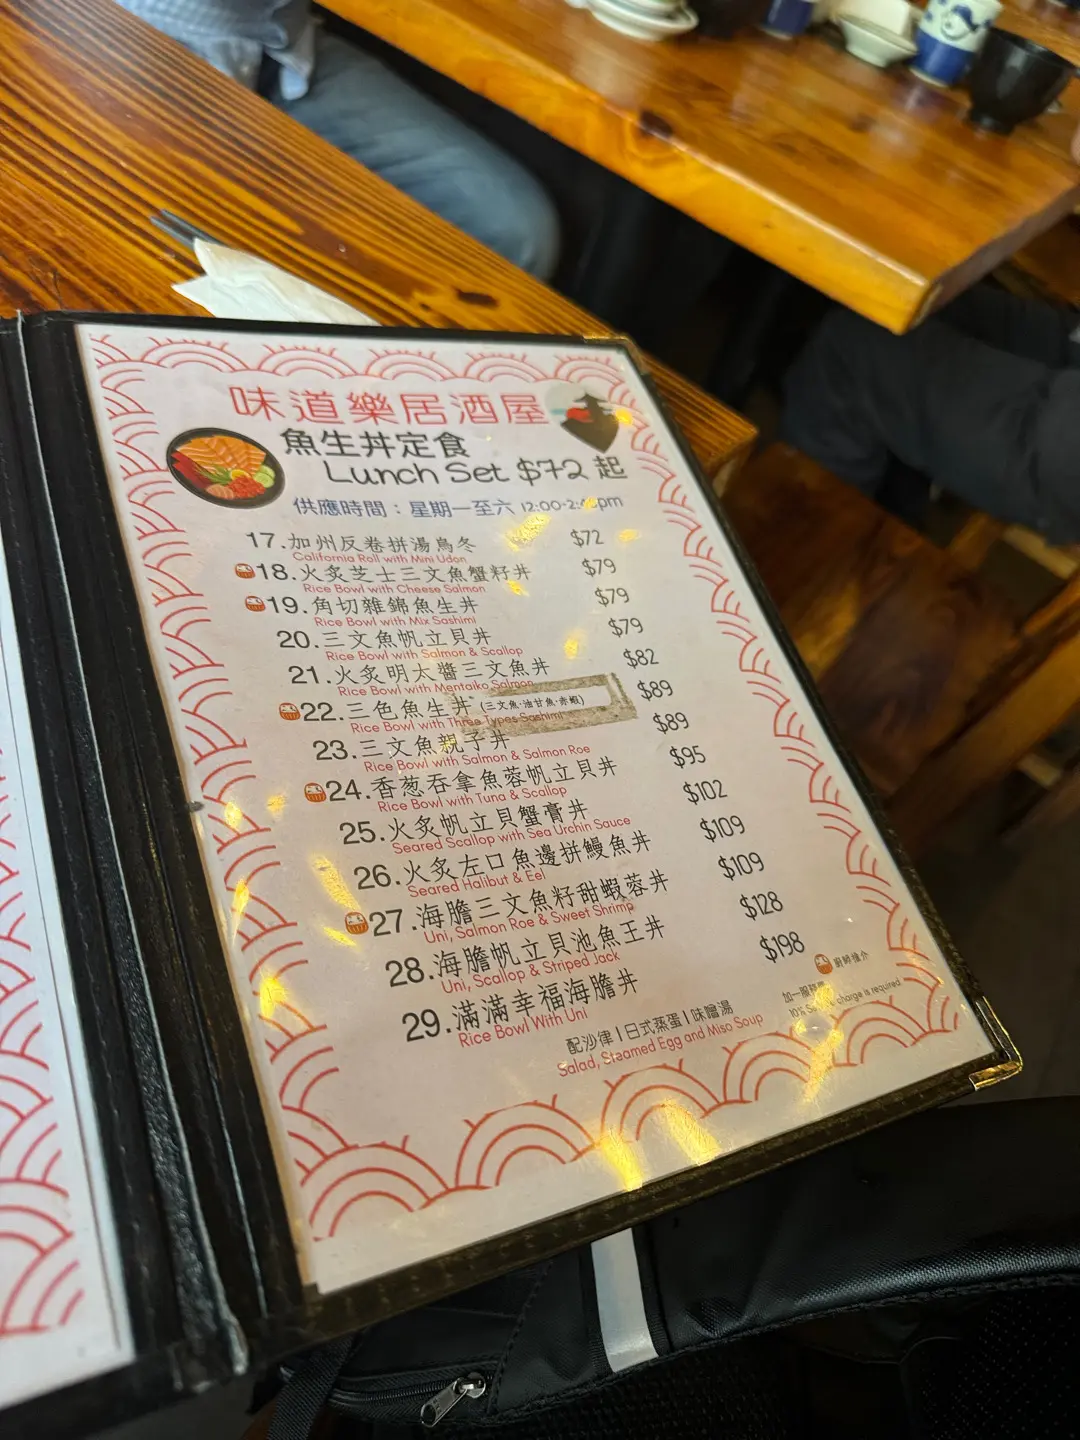 味道樂居酒屋
魚生丼定食
Lunch Set $72 起
供應時間：星期一至六 12:00-2: pm
17.加州反卷拼湯烏冬 $72
California Roll with Mini Udon
18.火炙芝士三文魚蟹籽丼 $79
Rice Bowl with Cheese Salmon
19.角切雜錦魚生丼 $79
Rice Bowl with Mix Sashimi
20.三文魚帆立貝丼 $79
Rice Bowl with Salmon & Scallop
21.火炙明太醬三文魚丼 $82
Rice Bowl with Mentaiko Salmon
22.三色魚生丼 (三文魚·油甘魚·赤蝦) $89
Rice Bowl with Three Types Sashimi
23.三文魚親子丼 $89
Rice Bowl with Salmon & Salmon Roe
24.香葱吞拿魚蓉帆立貝丼 $95
Rice Bowl with Tuna & Scallop
25.火炙帆立貝蟹膏丼 $102
Seared Scallop with Sea Urchin Sauce
26.火炙左口魚邊拼鰻魚丼 $109
Seared Halibut & Eel
27.海膽三文魚籽甜蝦蓉丼 $109
Uni, Salmon Roe & Sweet Shrimp
28.海膽帆立貝池魚王丼 $128
Uni, Scallop & Striped Jack
29.滿滿幸福海膽丼 $198
Rice Bowl With Uni
廚師推介
配沙律 | 日式蒸蛋 | 味噌湯
Salad, Steamed Egg and Miso Soup
加一服務
10% charge is required